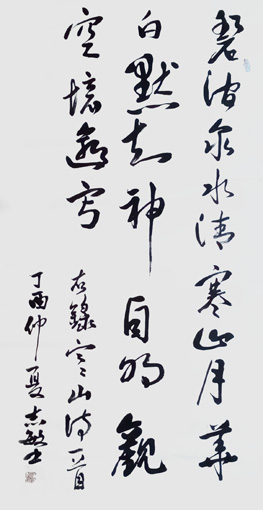 碧澗泉水清寒山月華
白默知神自明觀
空境逾寂
右錄寒山诗一首
丁酉仲夏志敏